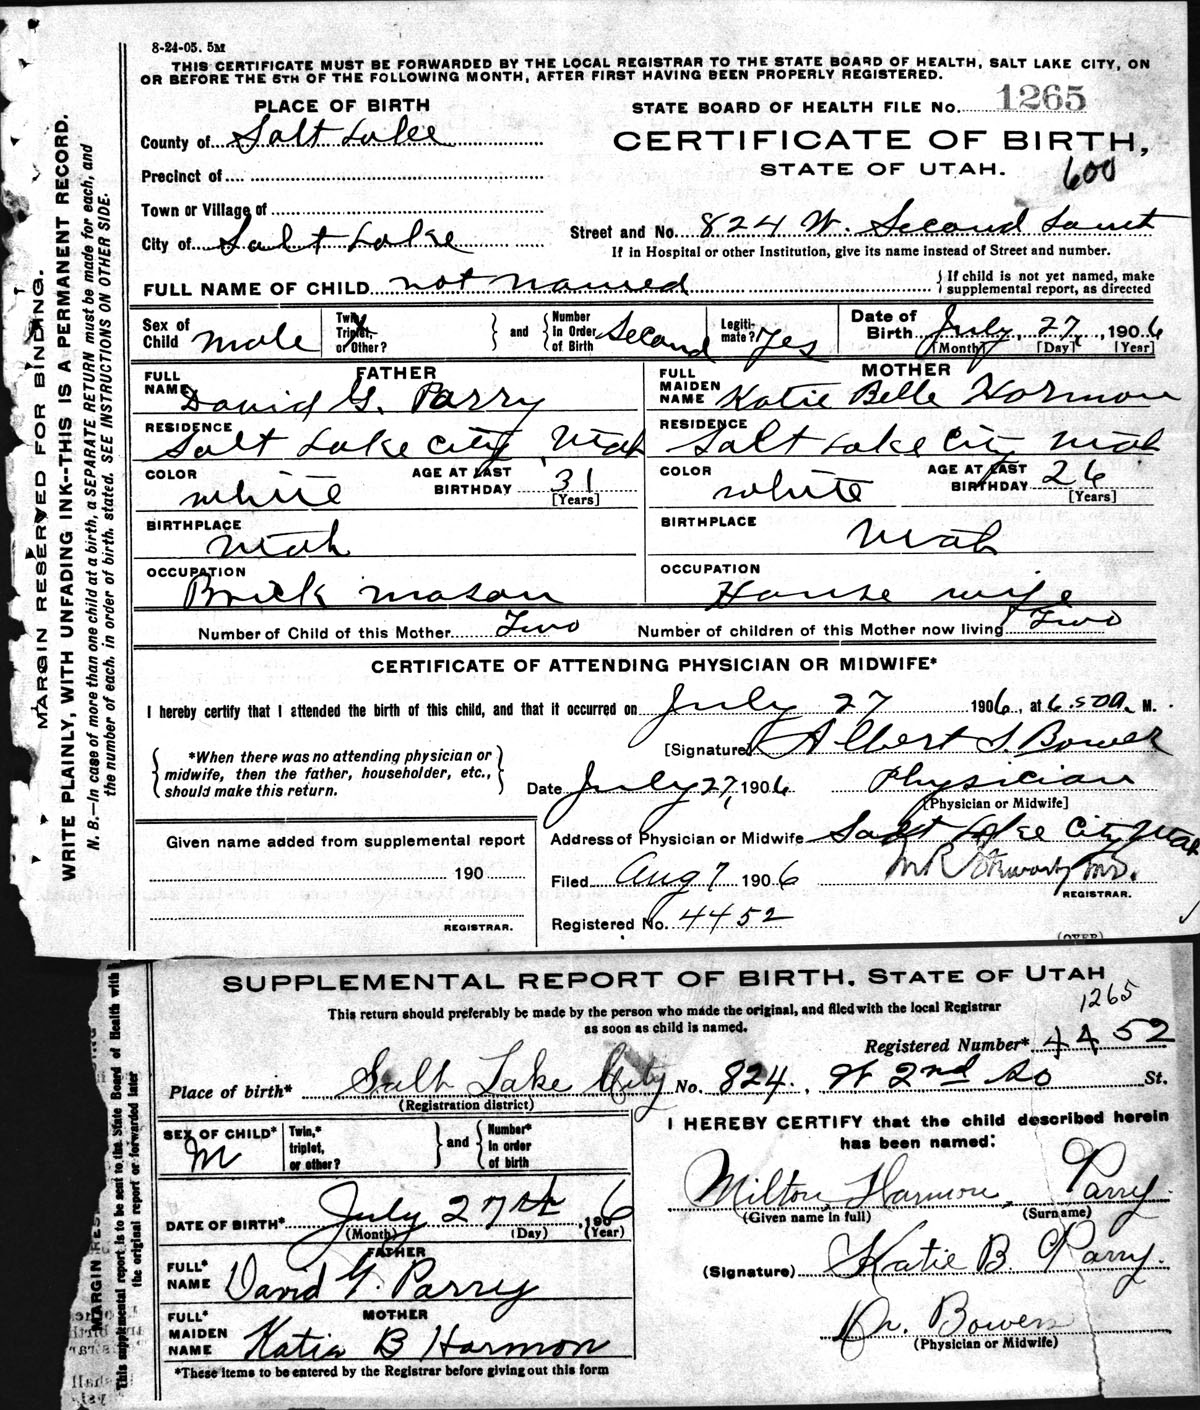 8-24-05. 5M
THIS CERTIFICATE MUST BE FORWARDED BY THE LOCAL REGISTRAR TO THE STATE BOARD OF HEALTH, SALT LAKE CITY, ON
OR BEFORE THE 5TH OF THE FOLLOWING MONTH, AFTER FIRST HAVING BEEN PROPERLY REGISTERED.
PLACE OF BIRTH
STATE BOARD OF HEALTH FILE No. 1265
County of Salt Lake
CERTIFICATE OF BIRTH,
STATE OF UTAH.
600
Precinct of
Town or Village of
City of Salt Lake
Street and No. 824 W. Second South
If in Hospital or other Institution, give its name instead of Street and number.
FULL NAME OF CHILD not named
{If child is not yet named, make
supplemental report, as directed
Sex of Child male
Twin, Triplet, or Other?
} and {
Number In Order of Birth Second
Legiti-mate? Yes
Date of Birth July 27, 1906
[Month] [Day] [Year]
FATHER
FULL NAME David G. Parry
RESIDENCE Salt Lake City, Utah
COLOR white
AGE AT LAST BIRTHDAY 31
[Years]
BIRTHPLACE Utah
OCCUPATION Brick mason
MOTHER
FULL MAIDEN NAME Katie Belle Harmon
RESIDENCE Salt Lake City Utah
COLOR white
AGE AT LAST BIRTHDAY 26
[Years]
BIRTHPLACE Utah
OCCUPATION House wife
Number of Child of this Mother Two
Number of children of this Mother now living Two
CERTIFICATE OF ATTENDING PHYSICIAN OR MIDWIFE*
I hereby certify that I attended the birth of this child, and that it occurred on July 27 1906, at 6.50 a. M.
{*When there was no attending physician or
midwife, then the father, householder, etc.,
should make this return.}
[Signature] Albert S. Bower
Date July 27, 1906 Physician
[Physician or Midwife]
Address of Physician or Midwife Salt Lake City Utah
Given name added from supplemental report
190
REGISTRAR.
Filed Aug 7 1906
REGISTRAR.
Registered No. 4452
(OVER)
MARGIN RESERVED FOR BINDING.
WRITE PLAINLY, WITH UNFADING INK--THIS IS A PERMANENT RECORD.
N. B.—In case of more than one child at a birth, a SEPARATE RETURN must be made for each, and
the number of each, in order of birth, stated. SEE INSTRUCTIONS ON OTHER SIDE.
SUPPLEMENTAL REPORT OF BIRTH, STATE OF UTAH
1265
This return should preferably be made by the person who made the original, and filed with the local Registrar
as soon as child is named.
Registered Number* 4452
Place of birth* Salt Lake City No. 824, W 2nd So St.
(Registration district)
SEX OF CHILD* M
Twin,* triplet, or other?
} and {
Number* In order of birth
DATE OF BIRTH* July 27th, 1906
(Month) (Day) (Year)
FATHER
FULL* NAME David G. Parry
MOTHER
FULL* MAIDEN NAME Katie B Harmon
*These items to be entered by the Registrar before giving out this form
I HEREBY CERTIFY that the child described herein
has been named:
Milton Harmon, Parry
(Given name in full) (Surname)
(Signature) Katie B. Parry.
Dr. Bowers
(Physician or Midwife)
This supplemental report is to be sent to the State Board of Health with
the original report or forwarded later